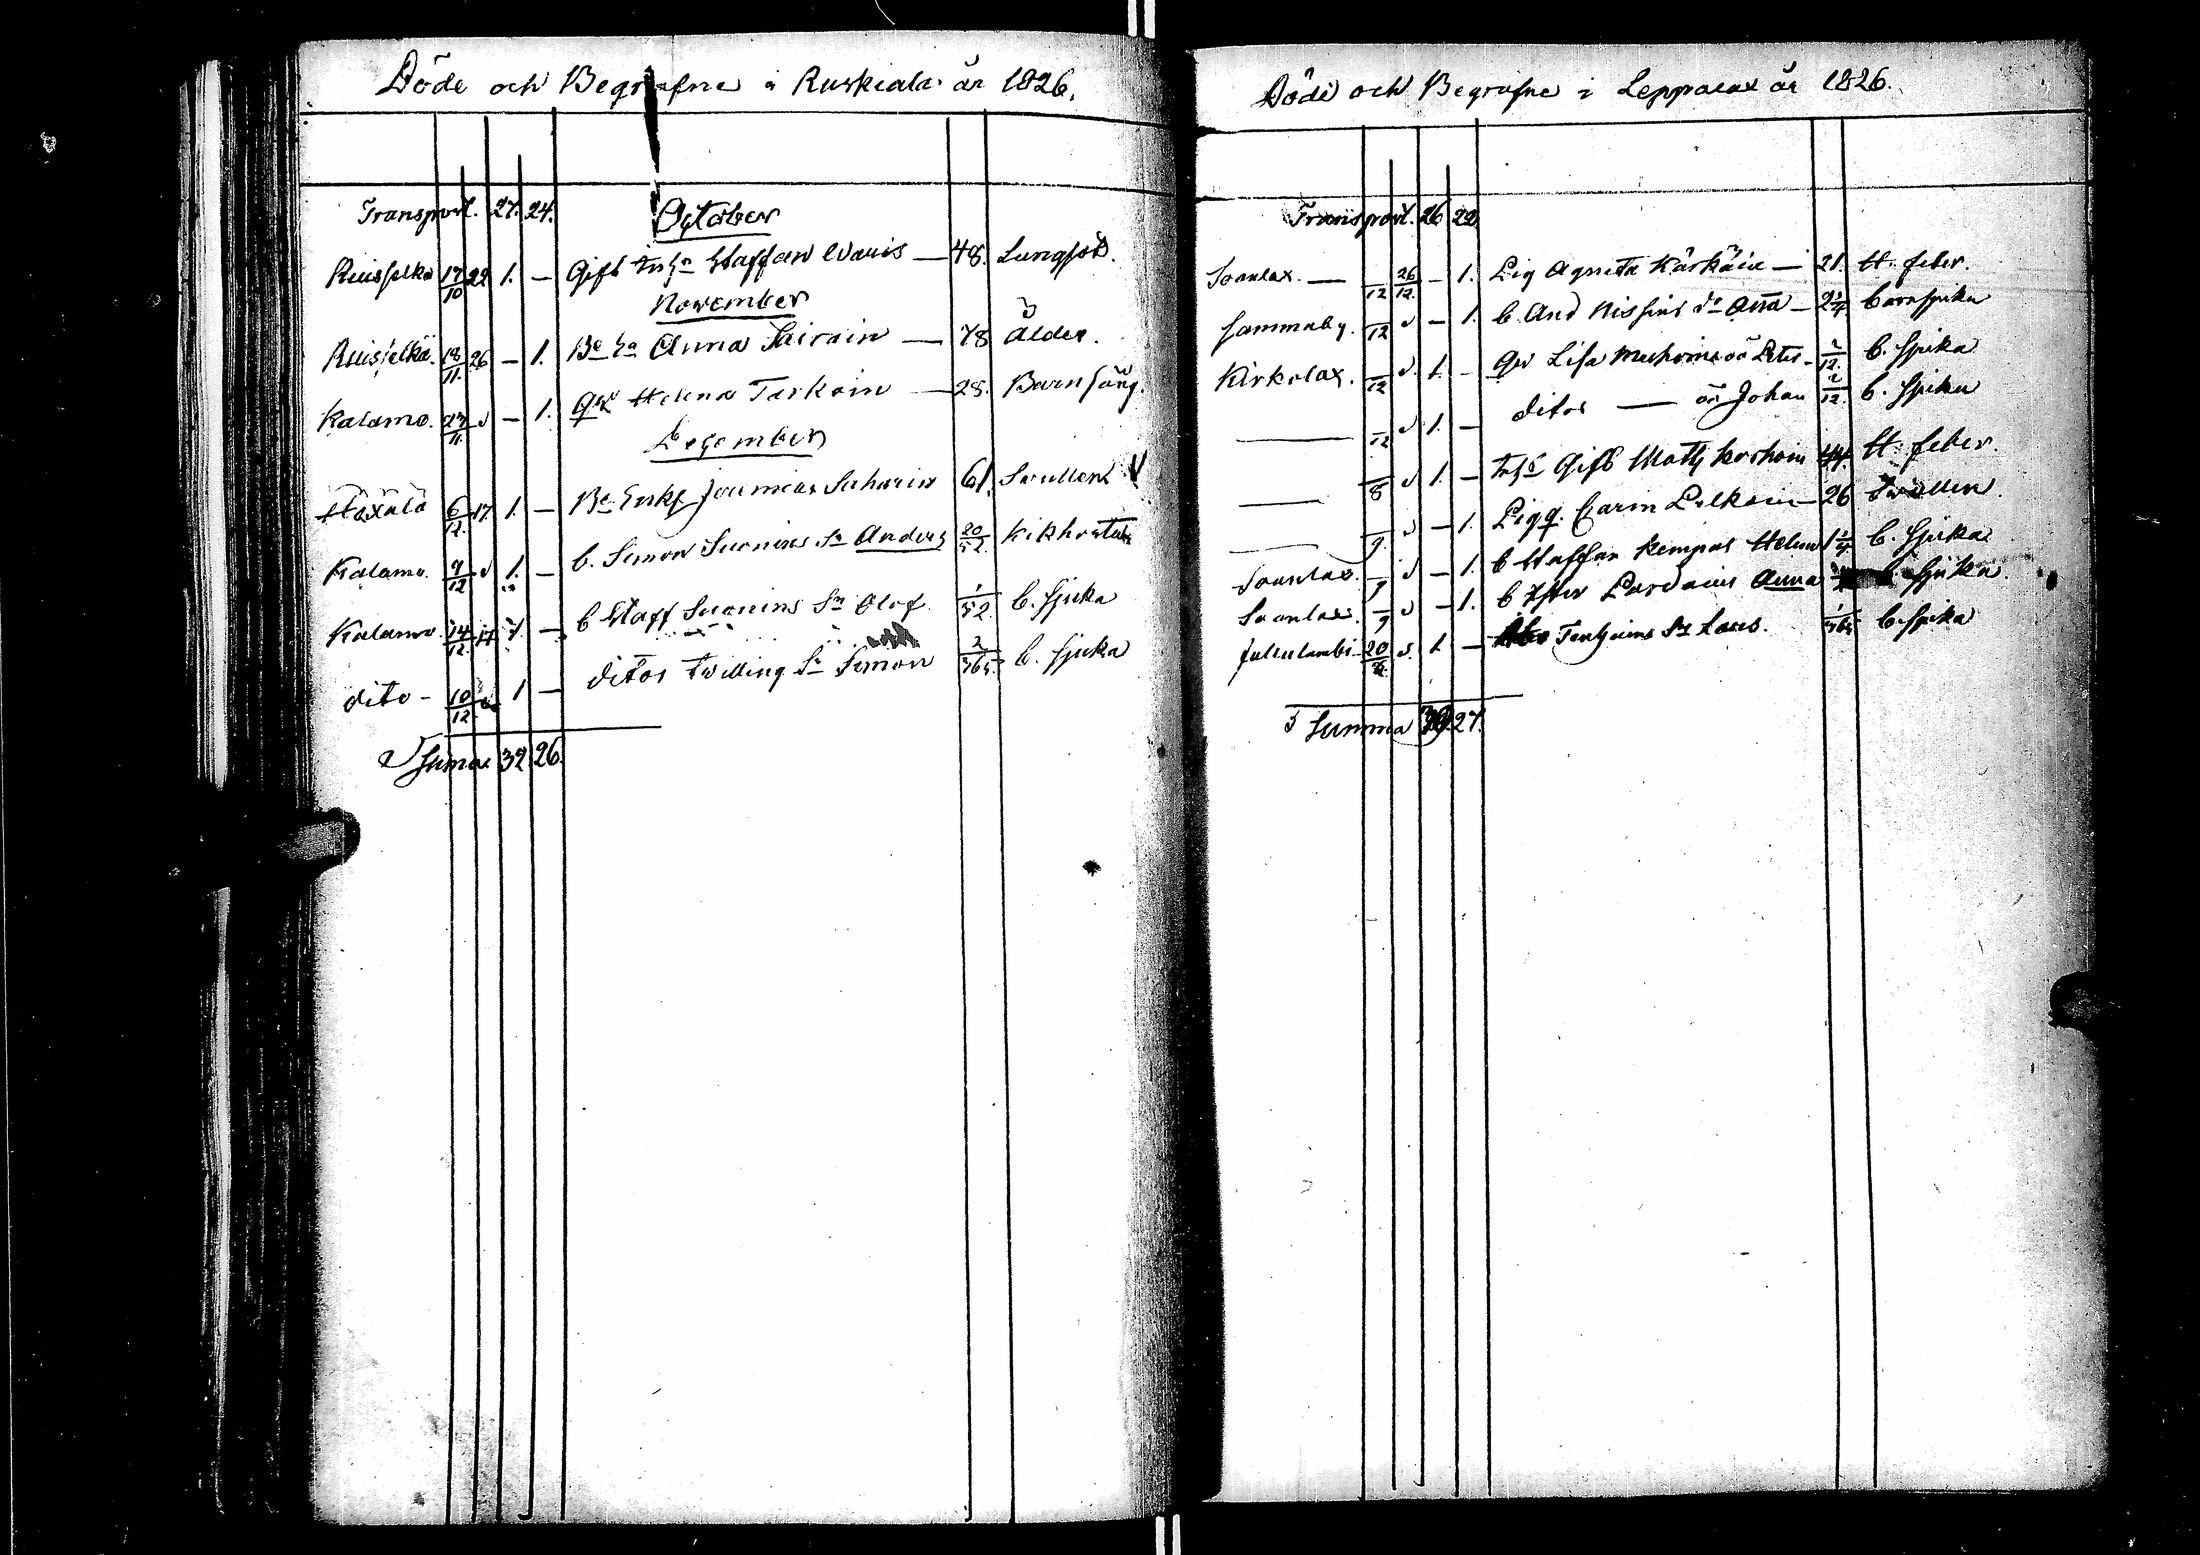 Döde och Begrafne i Ruskiala år 1826.
Transport. 27. 24. October
Ruisselkä 17/10 22 1. — Gift Inhs Staffan Waris — 48. Lungsot.
November
Ruisselkä. 18/11. 26 — 1. Be Ha Anna Sairain — 78 Ålder.
Kalamo. 23/11 d — 1. Qv Helena Tarkain — 28. Barnsäng.
December
Häxälä 6/12. 17 1. — Be Enkl Jeremias Saharin 61. Swullen V
Kalamo. 9/12 d 1. — b. Simon Suonins Sn Anders 20/52. Kikhosta
Kalamo 14/12 17 1. — b Staff Suonins Sn Olof. 1/52 b. Sjuka
dito — 10/12 d 1 — ditos Twilling Sn Simon 2/365. b. Sjuka
Summa 32 26.
Döde och Begrafne i Leppälax år 1826.
Transport. 26 22
Soanlax. — /12 26/12. — 1. Pig Agneta Kärkäin — 21. H. feber.
Sammaby. /12 d — 1. b. And Nissins dr Anna — 2 1/4 barnsjuka
Kirkolax. /12 d. 1. — Qv Lisa Muhoins oä Peter — 2/12. b. Sjuka
— /12 d 1. — ditos — oä Johan 2/12. b. Sjuka
— /8 d 1. — Inhs Gift Matts Korhoin 44. H. feber.
— /9. d — 1. Pigq. Carin Pelkoin — 26 Swullen.
Soanlax. — /9 d — 1. b Staffan Kempas Helena 1 1/4 b. Sjuka
Soanlax. — /9 d — 1. b Ester Pardains Anna b. Sjuka.
Jullulambi 20/12. d. 1. — Sn Lars. 1/365 b. Sjuka
Summa 30. 27.